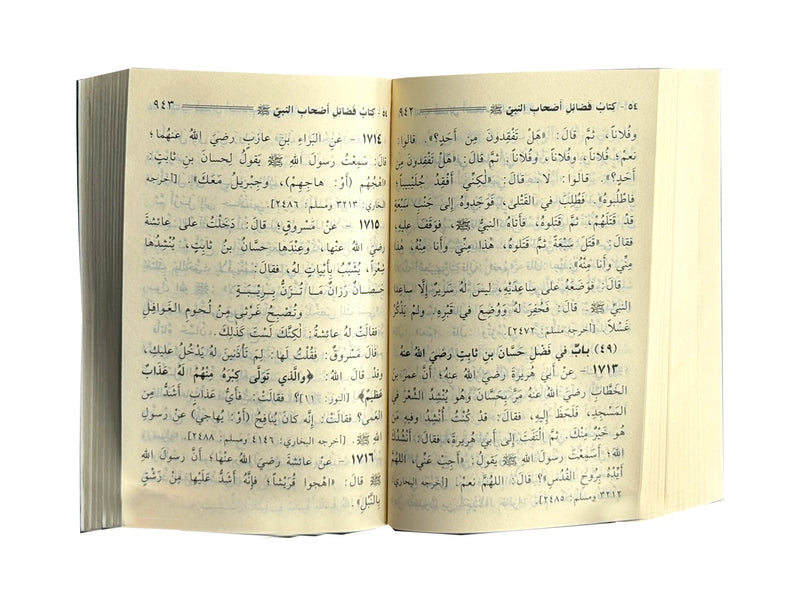 ٥٤- كتاب فضائل أصحاب النبيّ ﷺ ٩٤٢
وفُلاناً، ثمَّ قالَ: «هَلْ تَفْقِدونَ مِن أَحَدٍ؟»، قالوا:
نعم؛ فُلاناً، وفُلاناً، وفُلاناً، ثمَّ قالَ: «هَلْ تَفْقِدونَ مِن
أَحَدٍ؟». قالوا: لا. قالَ: «لَكِنِّي أَفْقِدُ جُلَيْبِيباً؛
فاطْلُبوهُ». فَطُلِبَ في القَتْلى، فَوَجَدوهُ إلى جَنْبِ سَبْعَةٍ
قَدْ قَتَلَهُمْ، ثمَّ قَتَلوهُ، فأتاهُ النبيُّ ﷺ، فوَقَفَ عليهِ،
فقالَ: «قَتَلَ سَبْعَةً ثمَّ قَتَلوهُ، هَذا مِنِّي وأَنا مِنْهُ، هَذا
مِنِّي وأَنا مِنْهُ؟».
قالَ: فَوَضَعَهُ على ساعِدَيْهِ، ليسَ لهُ سَريرٌ إلَّا ساعِدا
النبيِّ ﷺ. قالَ: فَحُفِرَ لهُ ووُضِعَ في قَبْرِهِ. ولمْ يَذْكُرْ
غَسْلاً. [أخرجه مسلم: ٢٤٧٢]
(٤٩) بابٌ في فَضْلِ حَسَّانَ بنِ ثابتٍ رضيَ اللهُ عنهُ
١٧١٣ - عن أبي هُريرةَ رضيَ اللهُ عنهُ؛ أنَّ عمرَ بنَ
الخَطَّابِ رضيَ اللهُ عنهُ مَرَّ بِحَسَّانَ وهُوَ يُنْشِدُ الشِّعْرَ في
المَسجِدِ، فَلَحَظَ إليهِ، فقالَ: قدْ كُنْتُ أُنْشِدُ وفيهِ مَن
هُو خَيْرٌ مِنْكَ. ثمَّ الْتَفَتَ إلى أبي هُريرةَ، فقالَ: أَنْشُدُكَ
اللهَ؛ أَسَمِعْتَ رسولَ اللهِ ﷺ يقولُ: «أَجِبْ عَنِّي، اللهُمَّ
أَيِّدْهُ بِرُوحِ القُدُسِ»؟ قالَ: اللهُمَّ نعمْ. [أخرجه البخاري:
٣٢١٢ ومسلم: ٢٤٨٥]
٥٤- كتاب فضائل أصحاب النبيّ ﷺ ٩٤٣
١٧١٤ - عنِ البَرَاءِ بنِ عازبٍ رضيَ اللهُ عنهُما؛
قالَ: سَمِعْتُ رسولَ اللهِ ﷺ يَقولُ لِحسانَ بنِ ثابتٍ:
«اهْجُهُم (أوْ: هاجِهِمْ)، وجِبْريلُ مَعَكَ». [أخرجه
البخاري: ٣٢١٣ ومسلم: ٢٤٨٦]
١٧١٥ - عن مَسْروقٍ؛ قالَ: دَخَلْتُ على عائشةَ
رضيَ اللهُ عنها، وعِنْدَها حَسَّانُ بنُ ثابتٍ، يُنْشِدُها
شِعْراً، يُشَبِّبُ بِأَبْياتٍ لهُ، فقالَ:
حَصَانٌ رَزَانٌ مَا تُزَنُّ بِرِيبَةٍ
وتُصْبِحُ غَرْثَى مِنْ لُحومِ الغَوافِلِ
فقالتْ لهُ عائشةُ: لَكِنَّكَ لَسْتَ كَذلِكَ.
قالَ مَسْروقٌ: فَقُلْتُ لَها: لِمَ تَأْذَنينَ لَهُ يَدْخُلُ عليكِ،
وقدْ قالَ اللهُ: ﴿والَّذي تَوَلَّى كِبْرَهُ مِنْهُمْ لَهُ عَذَابٌ
عَظيمٌ﴾ [النور: ١١]؟ فقالتْ: فأَيُّ عَذابٍ أَشَدُّ مِنَ
العَمى؟ فقالتْ: إنَّه كانَ يُنافِحُ (أوْ: يُهاجي) عنْ رسولِ
اللهِ ﷺ. [أخرجه البخاري: ٤١٤٦ ومسلم: ٢٤٨٨]
١٧١٦ - عن عائشةَ رضيَ اللهُ عنها؛ أنَّ رسولَ اللهِ
ﷺ قالَ: «اهْجوا قُرَيْشاً؛ فإنَّهُ أَشَدُّ عَلَيْها مِنْ رَشْقٍ
بِالنَّبْلِ».